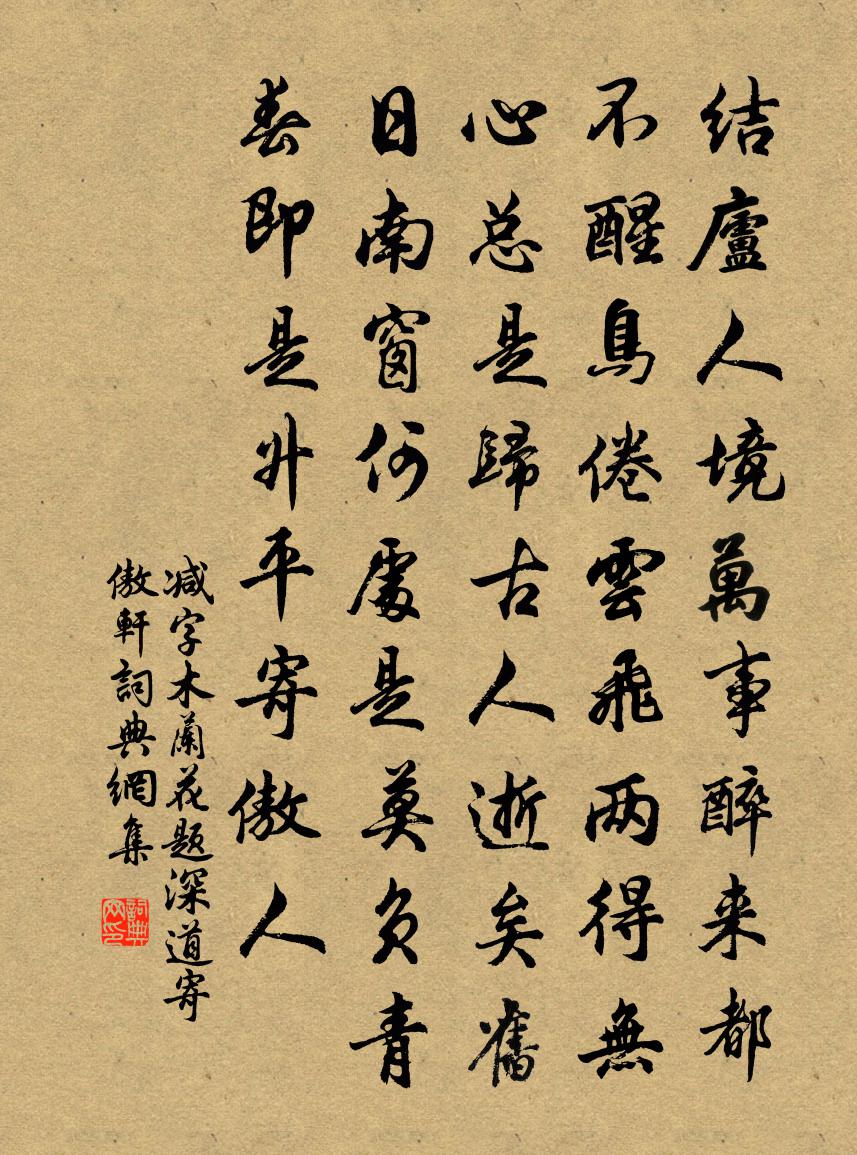 结廬人境萬事醉来都
不醒鳥倦雲飛两得無
心总是歸古人逝矣舊
日南窗何處是莫负青
春即是升平寄傲人
减字木蘭花题深道寄
傲軒詞典網集
詞典网印